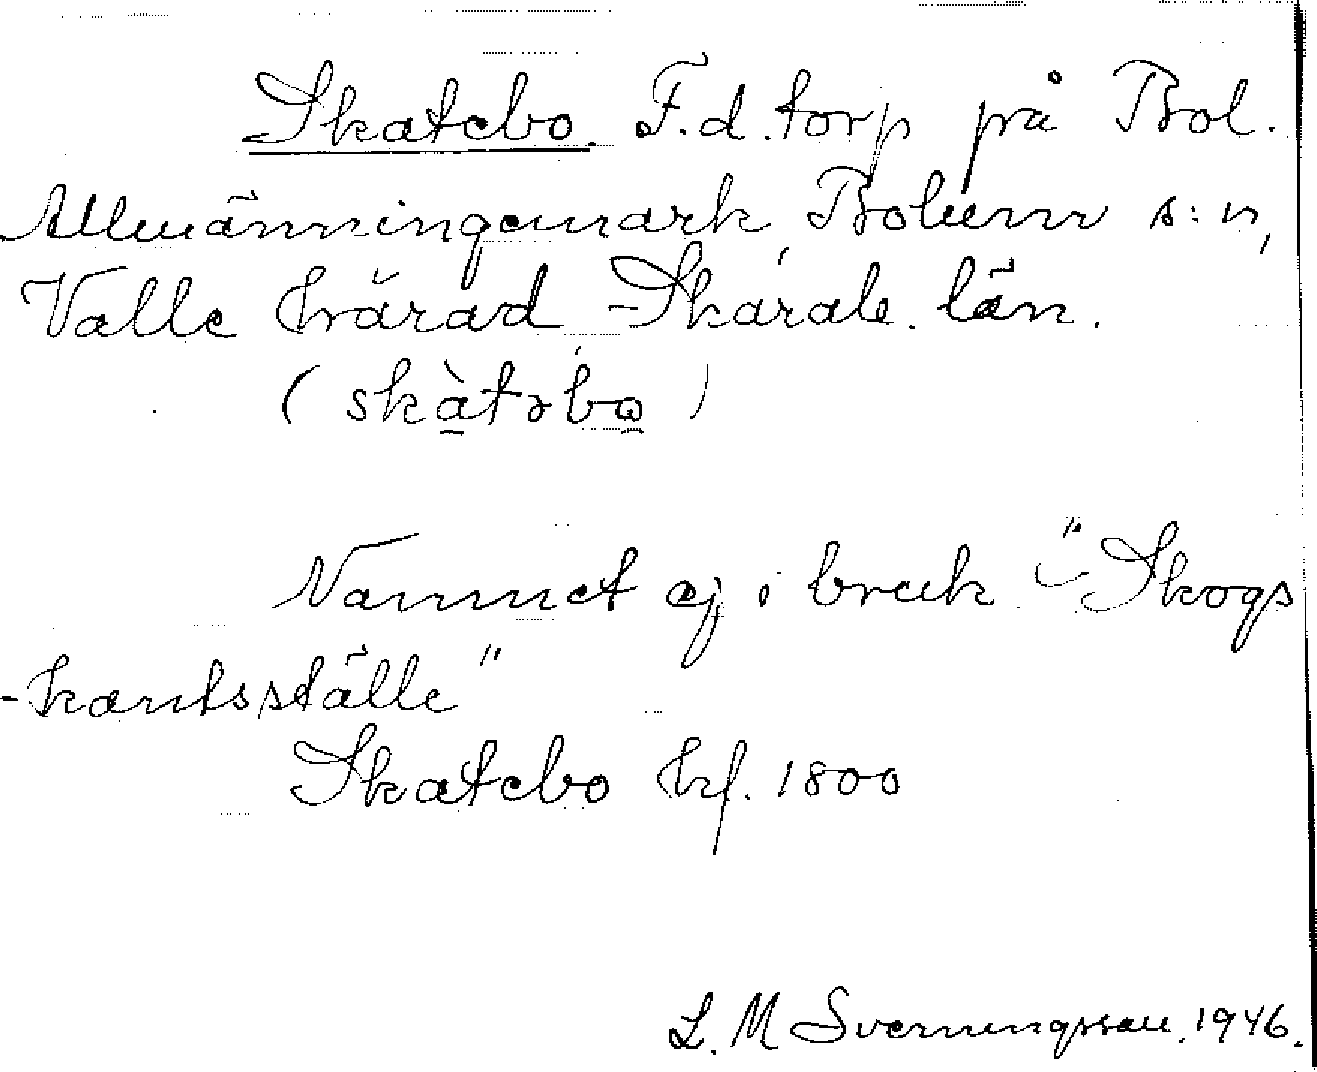 Skatebo. F.d. torp på Bol.
Allmänningemark, Bolum s:n,
Valle härad, Skarab. län.
(skàtəbo)
Namnet ej i bruk. "Skogs
-kantsställe"
Skatebo hf. 1800
L. M Sverningssau, 1946.